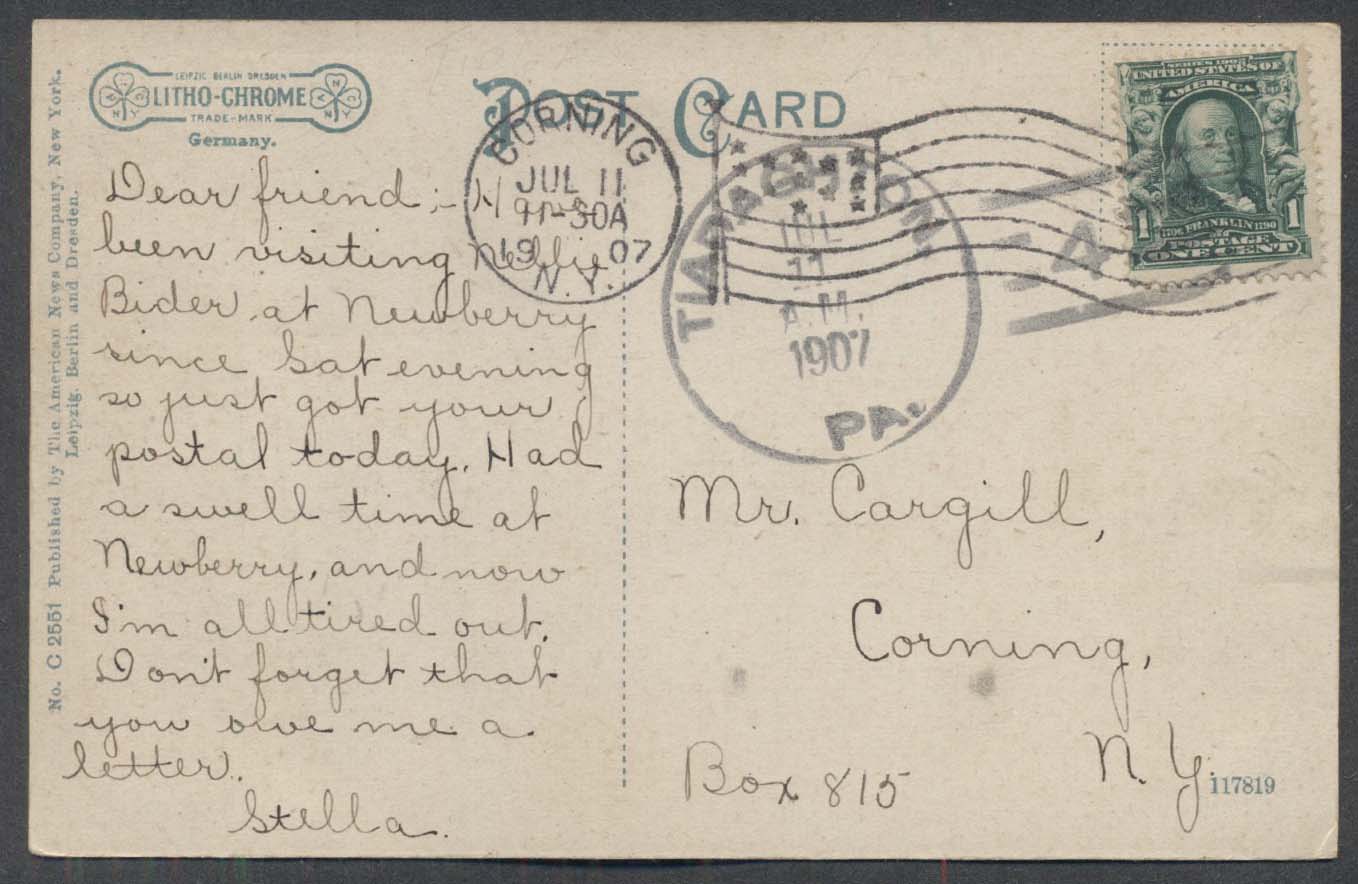 No. C 2551 Published by The American News Company, New York.
Leipzig, Berlin and Dresden.
LEIPZIG BERLIN DRESDEN
LITHO-CHROME
TRADE-MARK
Germany.
POST CARD
CORNING
JUL 11
1907
N.Y.
JUL
11
A.M.
1907
PA.
4
SERIES 1902
UNITED STATES OF
AMERICA
1706 FRANKLIN 1790
1 1
POSTAGE
ONE CENT
Dear friend;-
been visiting Nellie
Bider at Newberry
since Sat evening
so just got your
postal today. Had
a swell time at
Newberry, and now
I'm all tired out.
Don't forget that
you owe me a
letter.
Stella.
Mr. Cargill,
Corning,
Box 815
N. Y.
117819